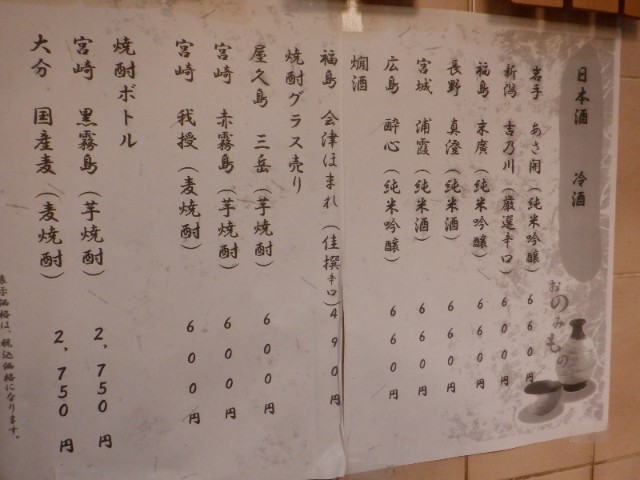 おのみもの
日本酒 冷酒
岩手 あさ開(純米吟醸) 660円
新潟 吉乃川(厳選辛口) 600円
福島 末廣(純米吟醸) 660円
長野 真澄(純米酒) 660円
宮城 浦霞(純米酒) 660円
広島 酔心(純米吟醸) 660円
燗酒
福島 会津ほまれ(佳撰辛口) 490円
焼酎グラス売り
屋久島 三岳(芋焼酎) 600円
宮崎 赤霧島(芋焼酎) 600円
宮崎 我授(麦焼酎) 600円
焼酎ボトル
宮崎 黒霧島(芋焼酎) 2,750円
大分 国産麦(麦焼酎) 2,750円
表示価格は、税込価格になります。